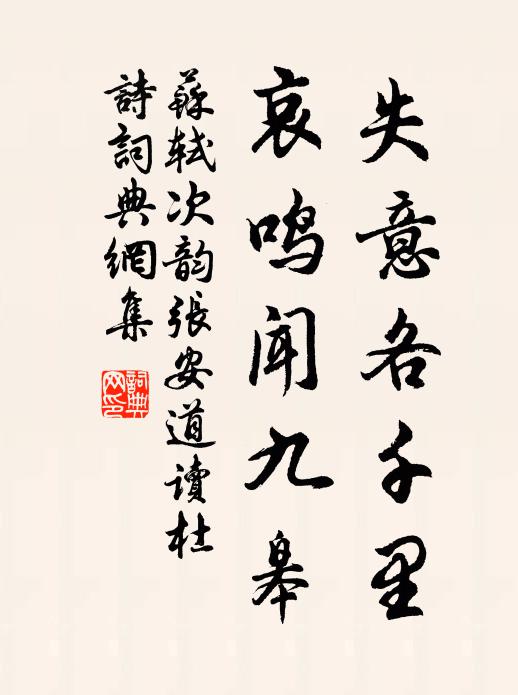 失意各千里
哀鸣闻九皋
蘇軾次韵張安道讀杜
詩詞典網集
詞典网印